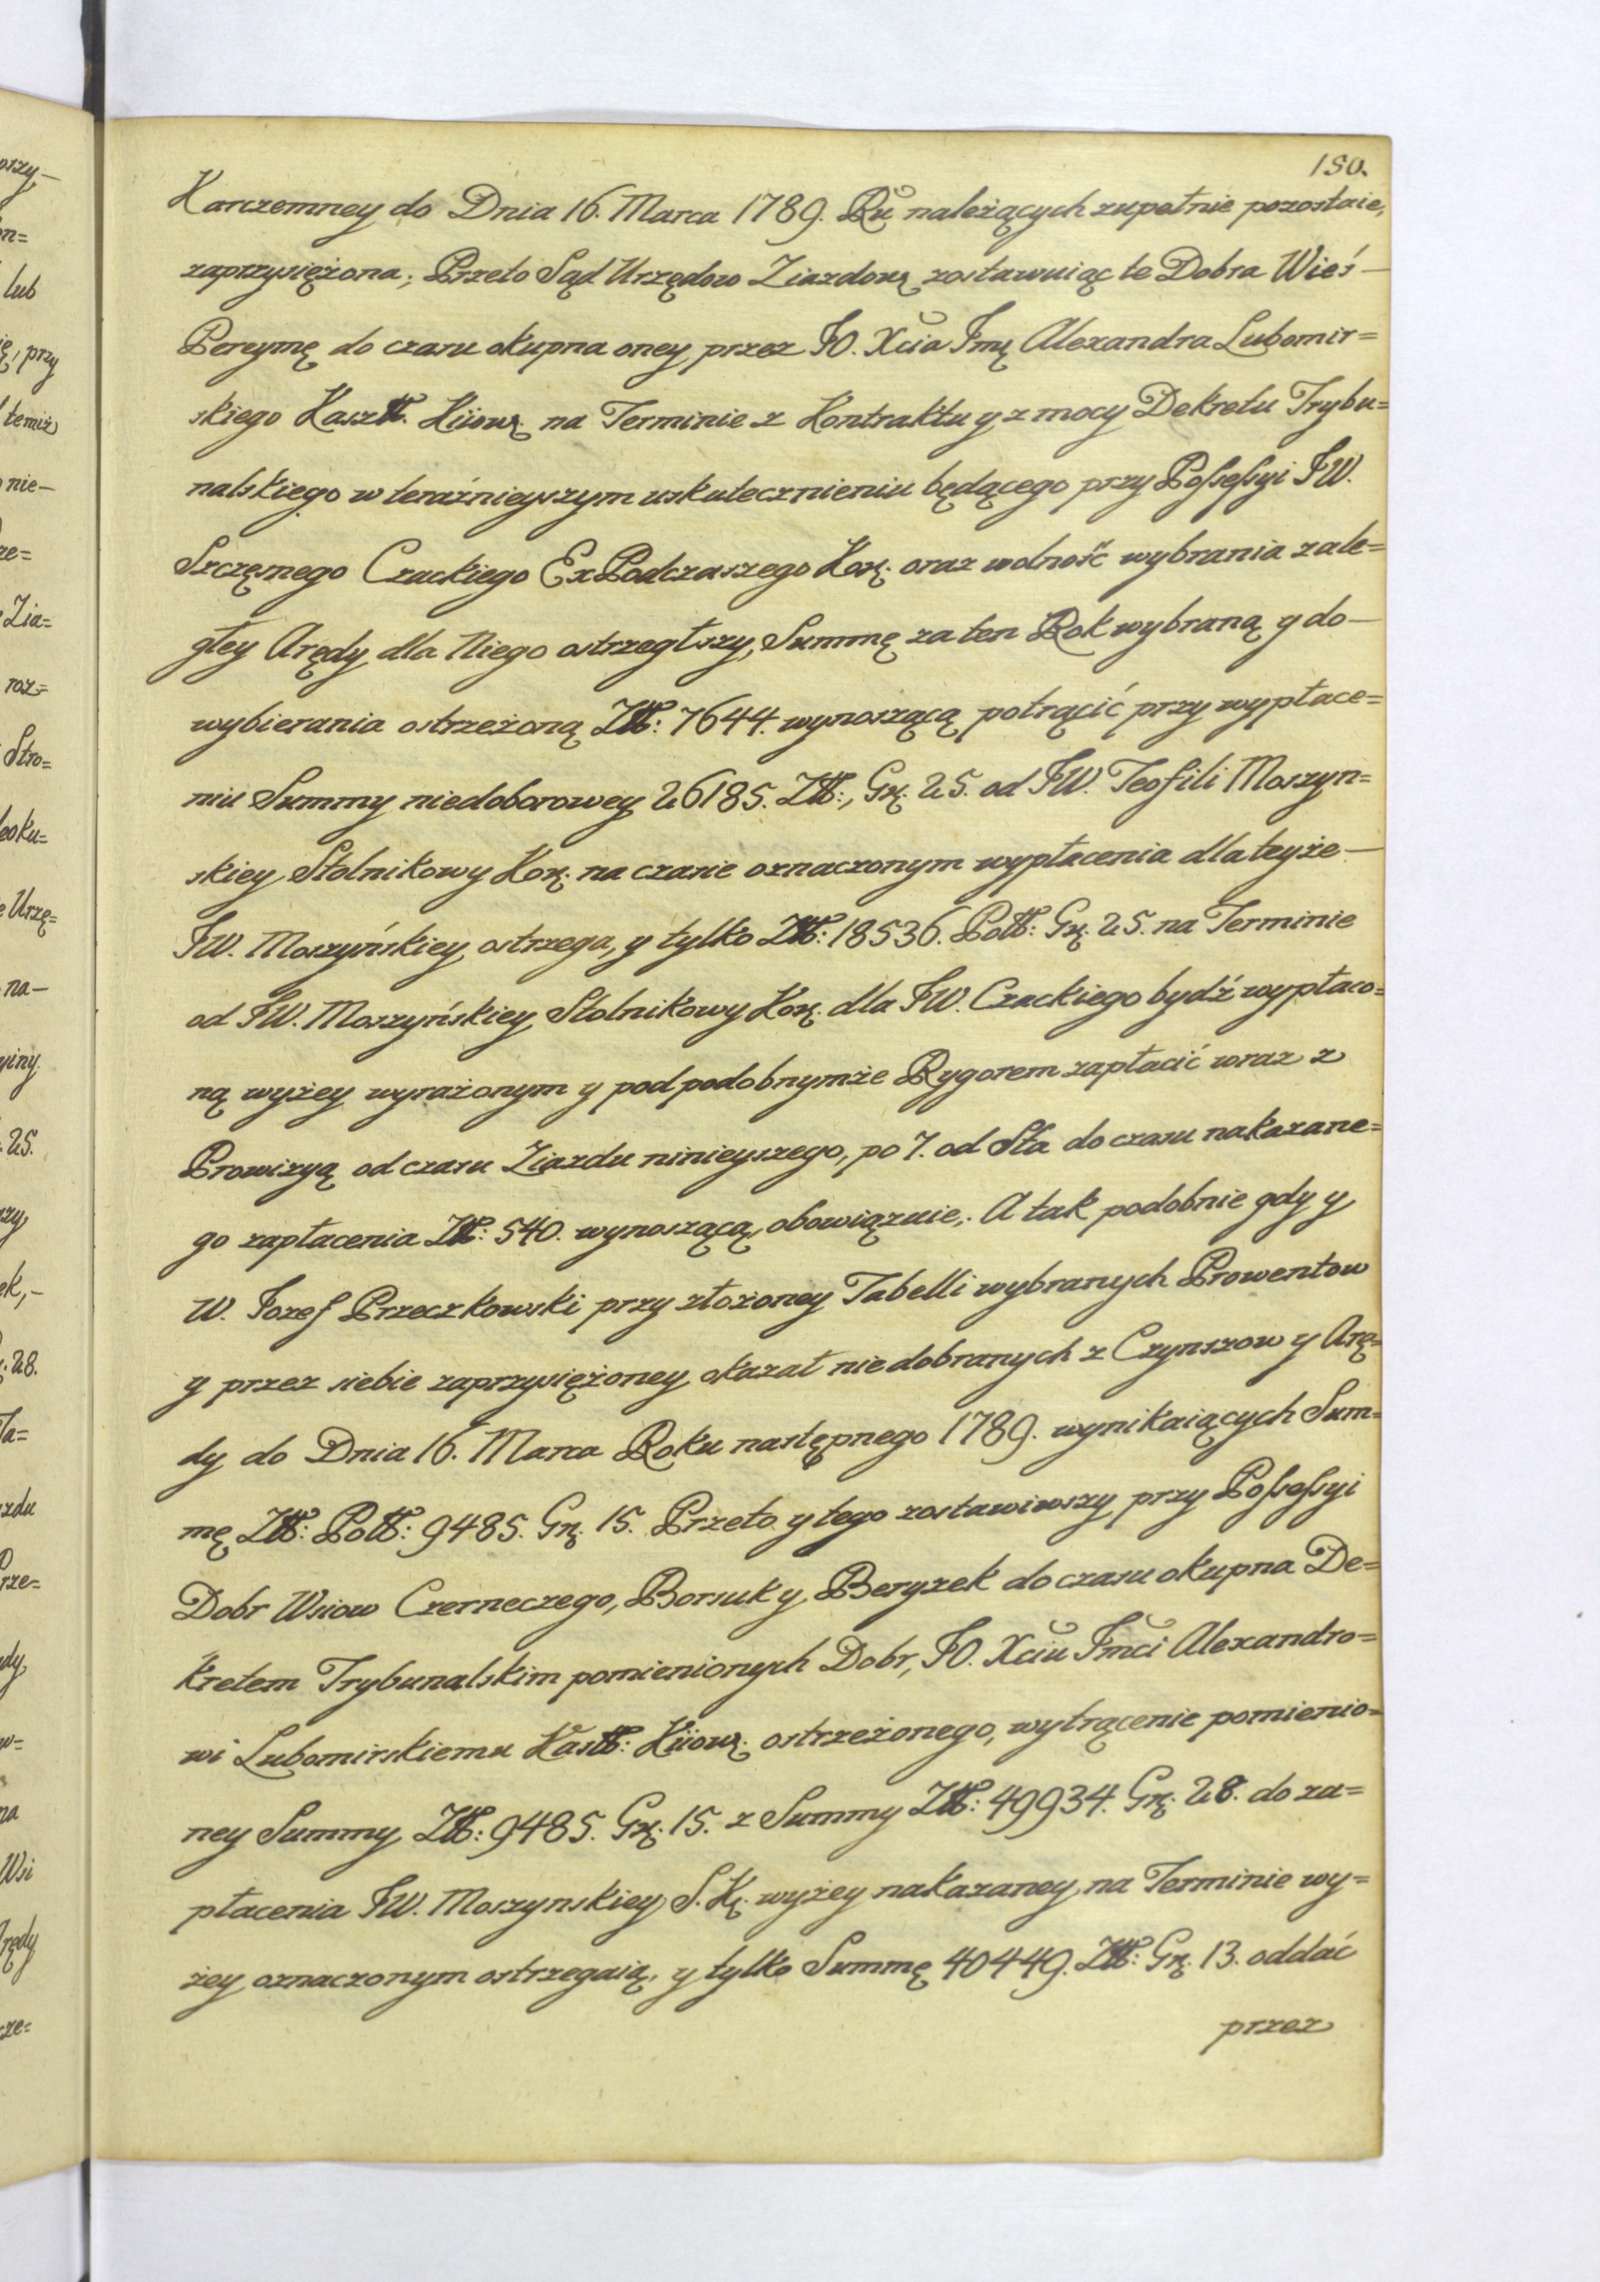 150.
Karczemney do Dnia 16. Marca 1789. Ru należących zupełnie pozostaie,
zaprzysiężona; Przeto Sąd Urzędow Ziazdowy zostawuiąc te Dobra Wieś —
Pereymę do czasu okupna oney przez JO. Xcia Jmę Alexandra Lubomir=
skiego Kasztt. Kiiowę. na Terminie z Kontraktu y z mocy Dekretu Trybu=
nalskiego w teraźnieyszym uskutecznieniu będącego przy Possessyi JW.
Szczęsnego Czackiego Ex Podczaszego Korę. oraz wolność wybrania zale=
głey Arędy dla Niego ostrzegłszy, Summę za ten Rok wybraną y do —
wybierania ostrzeżoną Ztt: 7644. wynoszącą potrącić przy wypłace=
niu Summy niedoborowey 26185. Ztt:, Grę. 25. od JW. Teofili Moszyn=
skiey Stolnikowy Korę. na czasie oznaczonym wypłacenia dla teyże —
JW. Moszyńskiey ostrzega, y tylko Ztt: 18536. Poltt: Grę. 25. na Terminie
od JW. Moszyńskiey Stolnikowy Korę. dla JW. Czackiego bydź wypłaco=
ną wyżey wyrażonym y pod podobnymże Rygorem zapłacić wraz z
Prowizyą od czasu Ziazdu ninieyszego, po 7. od Sta do czasu nakazane=
go zapłacenia Ztt: 540. wynoszącą, obowiązuie; A tak podobnie gdy y
W. Jozef Przeczkowski przy złożoney Tabelli wybranych Prowentow
y przez siebie zaprzysiężoney okazał niedobranych z Czynszow y Arę=
dy do Dnia 16. Marca Roku następnego 1789. wynikaiących Sum=
mę Ztt: Poltt: 9485. Grę. 15. Przeto y tego zostawiwszy przy Possessyi
Dobr Wsiow Czerneczego, Borsuk y Beryzek do czasu okupna De=
kretem Trybunalskim pomienionych Dobr, JO. Xciu Jmci Alexandro=
wi Lubomirskiemu Kastt: Kiiowę. ostrzeżonego, wytrącenie pomienio=
ney Summy Ztt: 9485. Grę. 15. z Summy Ztt: 49934. Grę. 28. do za=
płacenia JW. Moszynskiey S. Kę. wyżey nakazaney na Terminie wy=
żey oznaczonym ostrzegaią, y tylko Summę 40449. Ztt: Grę. 13. oddać
przez